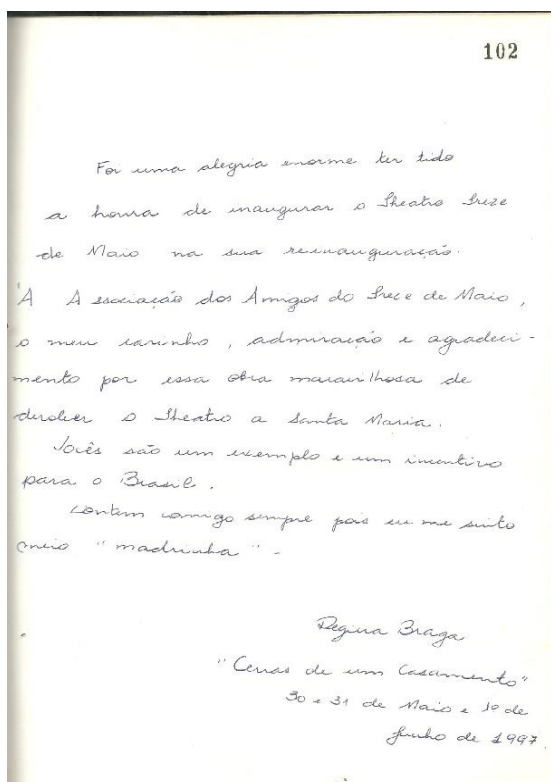 102
Foi uma alegria enorme ter tido
a honra de inaugurar o Theatro Treze
de Maio na sua reinauguração.
À Associação dos Amigos do Treze de Maio,
o meu carinho, admiração e agradeci-
mento por essa obra maravilhosa de
devolver o Theatro a Santa Maria.
Vocês são um exemplo e um incentivo
para o Brasil.
Contem comigo sempre pois eu me sinto
meio "madrinha".
Regina Braga
"Cenas de um Casamento"
30 e 31 de Maio e 1º de
Junho de 1997